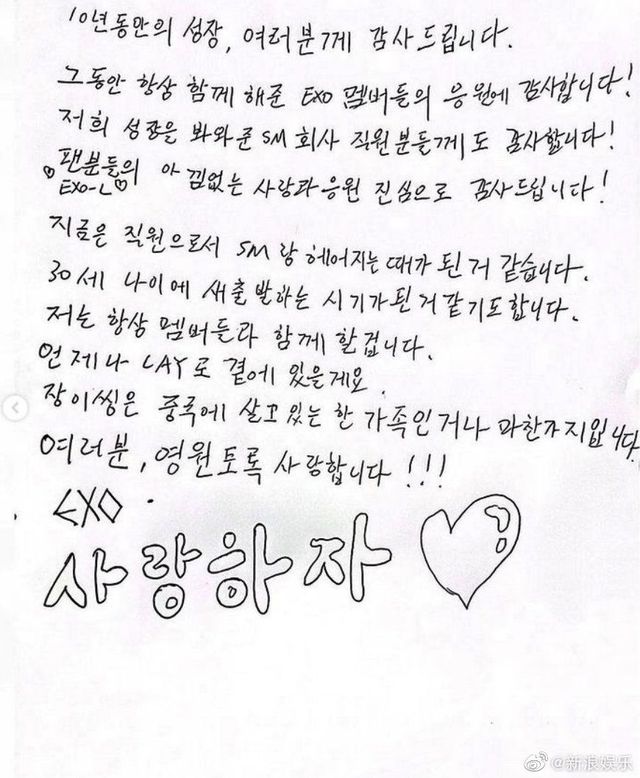 10년동안의 성장, 여러분께 감사드립니다.
그동안 항상 함께 해준 EXO 멤버들의 응원에 감사합니다!
저희 성장을 봐와준 SM 회사 직원분들께도 감사합니다!
♡팬분들의 아낌없는 사랑과 응원 진심으로 감사드립니다!
EXO-L♡
지금은 직원으로서 SM랑 헤어지는 때가 된 거 같습니다.
30세 나이에 새출발하는 시기가 된 거 같기도 합니다.
저는 항상 멤버들과 함께 할겁니다.
언제나 LAY로 곁에 있을게요.
장이씽은 중국에 살고 있는 한 가족인거나 마찬가지입니다.
여러분, 영원토록 사랑합니다!!!
EXO.
사랑하자 ♡
@新浪娱乐